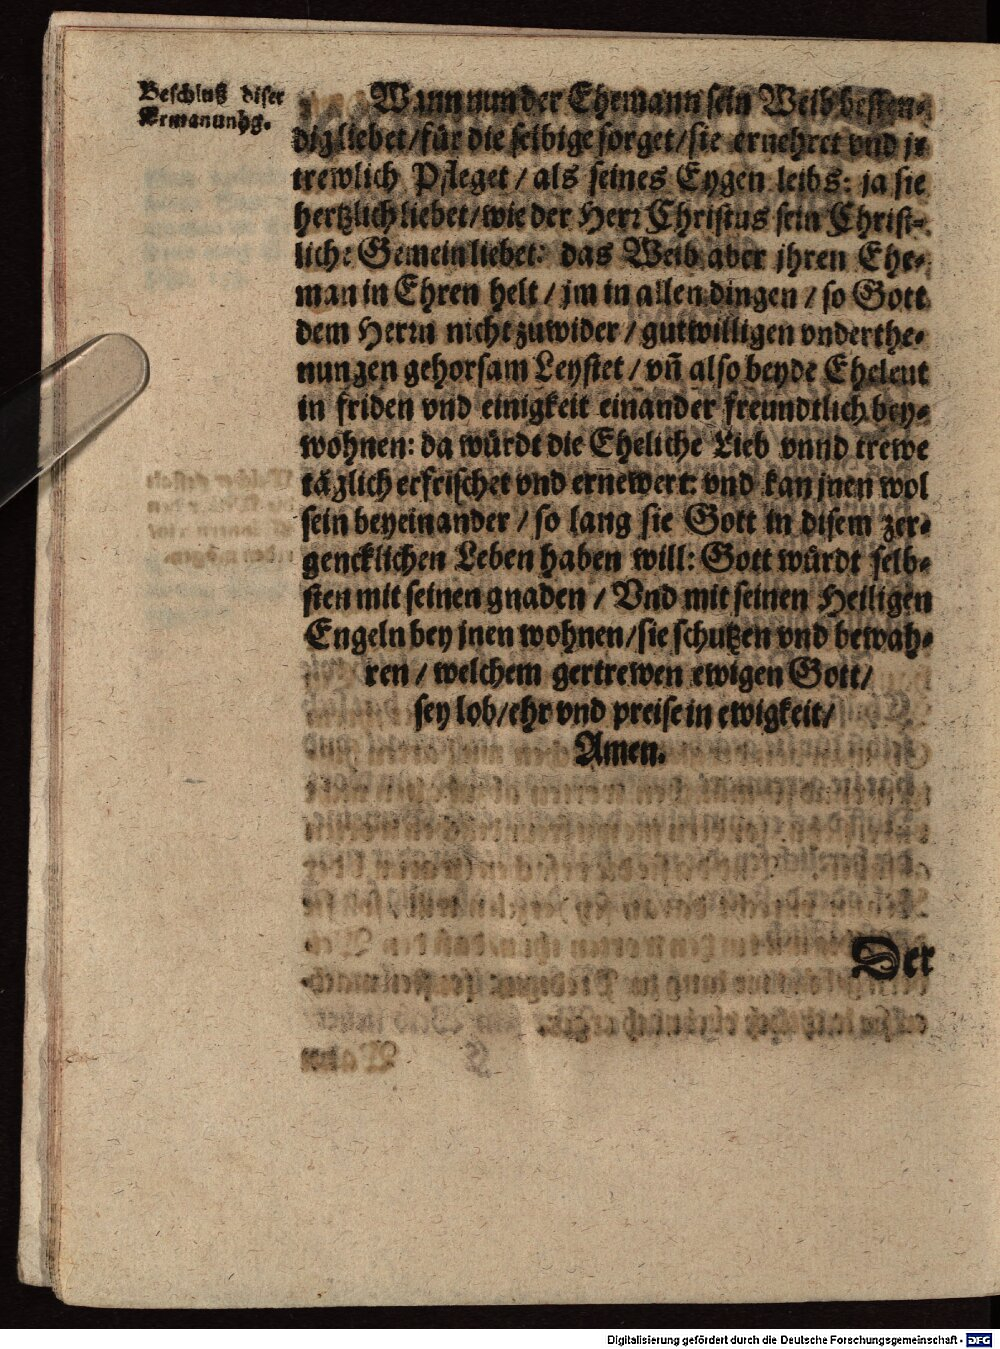 Beschluß diser
Ermanunhg.
Wann nun der Ehemann sein Weib besten⸗
dig liebet / für die selbige sorget / sie ernehret vnd jr
trewlich Pfleget / als seines Eygen leibs: ja sie
hertzlich liebet / wie der Herr Christus sein Christ⸗
liche Gemein liebet: das Weib aber jhren Ehe⸗
man in Ehren helt / jm in allen dingen / so Gott
dem Herrn nicht zuwider / gutwilligen vnderthe⸗
nungen gehorsam Leystet / vñ also beyde Eheleut
in friden vnd einigkeit einander freundtlich bey⸗
wohnen: da würdt die Eheliche Lieb vnnd trewe
täglich erfrischet vnd ernewert: vnd kan jnen wol
sein beyeinander / so lang sie Gott in disem zer⸗
gencklichen Leben haben will: Gott würdt selb⸗
sten mit seinen gnaden / Vnd mit seinen Heiligen
Engeln bey jnen wohnen / sie schutzen vnd bewah⸗
ren / welchem gertrewen ewigen Gott /
sey lob / ehr vnd preise in ewigkeit /
Amen.
Der
Digitalisierung gefördert durch die Deutsche Forschungsgemeinschaft - DFG